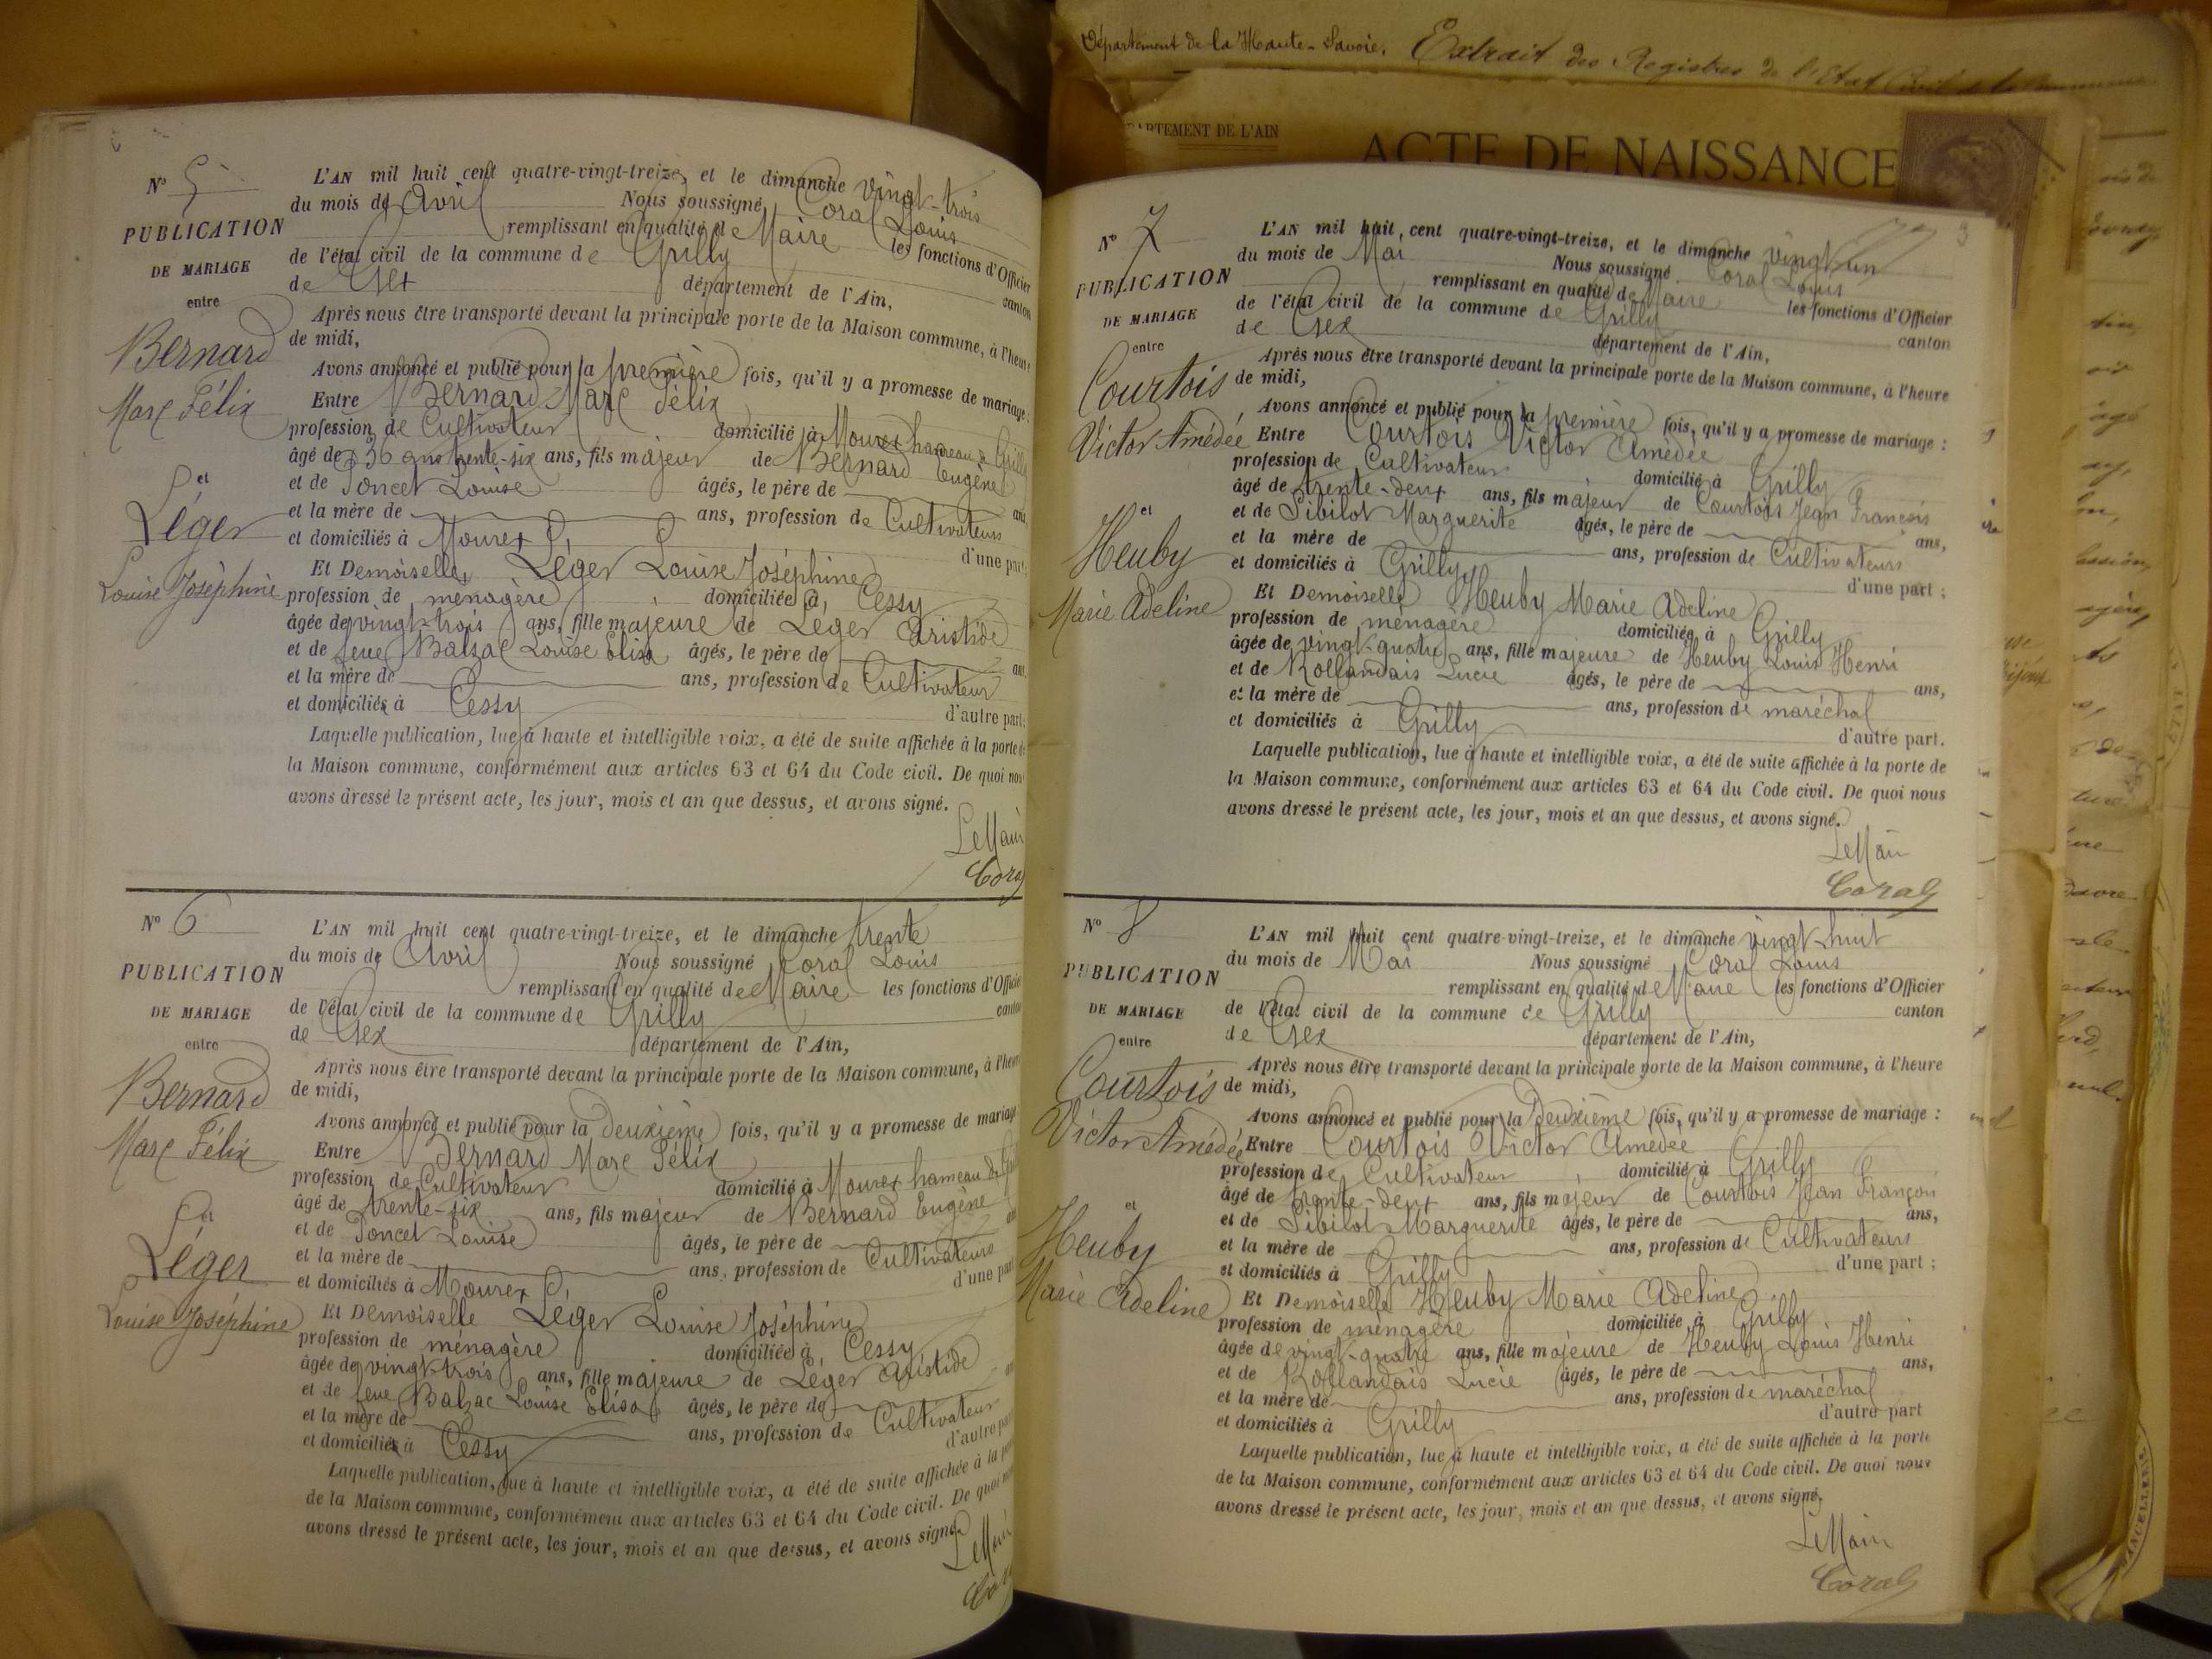 Département de la Haute-Savoie. Extrait des Registres de l'Etat Civil de la
DEPARTEMENT DE L'AIN
ACTE DE NAISSANCE
N° 5
PUBLICATION
DE MARIAGE
entre
Bernard
Marc Félix
et
Léger
Louise Joséphine
L'AN mil huit cent quatre-vingt-treize, et le dimanche vingt-trois
du mois de Avril Nous soussigné Coral Louis
remplissant en qualité de Maire les fonctions d'Officier
de l'état civil de la commune de Grilly canton
de Gex département de l'Ain,
Après nous être transporté devant la principale porte de la Maison commune, à l'heure
de midi,
Avons annoncé et publié pour la première fois, qu'il y a promesse de mariage :
Entre Bernard Marc Félix
profession de Cultivateur domicilié à Mourex hameau de Grilly
âgé de 36 ans trente-six ans, fils majeur de Bernard Eugène
et de Poncet Louise âgés, le père de ans,
et la mère de ans, profession de Cultivateurs
et domiciliés à Mourex d'une part
Et Demoiselle Léger Louise Joséphine
profession de ménagère domiciliée à Cessy
âgée de vingt-trois ans, fille majeure de Léger Aristide
et de feue Balzac Louise Elisa âgés, le père de ans,
et la mère de ans, profession de Cultivateur
et domiciliés à Cessy d'autre part.
Laquelle publication, lue à haute et intelligible voix, a été de suite affichée à la porte de
la Maison commune, conformément aux articles 63 et 64 du Code civil. De quoi nous
avons dressé le présent acte, les jour, mois et an que dessus, et avons signé.
Le Maire
Coral
N° 6
PUBLICATION
DE MARIAGE
entre
Bernard
Marc Félix
et
Léger
Louise Joséphine
L'AN mil huit cent quatre-vingt-treize, et le dimanche trente
du mois de Avril Nous soussigné Coral Louis
remplissant en qualité de Maire les fonctions d'Officier
de l'état civil de la commune de Grilly canton
de Gex département de l'Ain,
Après nous être transporté devant la principale porte de la Maison commune, à l'heure
de midi,
Avons annoncé et publié pour la deuxième fois, qu'il y a promesse de mariage
Entre Bernard Marc Félix
profession de Cultivateur domicilié à Mourex hameau de Grilly
âgé de trente-six ans, fils majeur de Bernard Eugène
et de Poncet Louise âgés, le père de ans
et la mère de ans, profession de Cultivateurs
et domiciliés à Mourex d'une part
Et Demoiselle Léger Louise Joséphine
profession de ménagère domiciliée à Cessy
âgée de vingt-trois ans, fille majeure de Léger Aristide
et de feue Balzac Louise Elisa âgés, le père de ans
et la mère de ans, profession de Cultivateur
et domiciliés à Cessy d'autre part
Laquelle publication, lue à haute et intelligible voix, a été de suite affichée à la porte
de la Maison commune, conformément aux articles 63 et 64 du Code civil. De quoi nous
avons dressé le présent acte, les jour, mois et an que dessus, et avons signé
Le Maire
Coral
3
N° 7
PUBLICATION
DE MARIAGE
entre
Courtois
Victor Amédée
et
Heuby
Marie Adeline
L'AN mil huit cent quatre-vingt-treize, et le dimanche vingt un
du mois de Mai Nous soussigné Coral Louis
remplissant en qualité de Maire les fonctions d'Officier
de l'état civil de la commune de Grilly canton
de Gex département de l'Ain,
Après nous être transporté devant la principale porte de la Maison commune, à l'heure
de midi,
Avons annoncé et publié pour la première fois, qu'il y a promesse de mariage :
Entre Courtois Victor Amédée
profession de Cultivateur domicilié à Grilly
âgé de trente-deux ans, fils majeur de Courtois Jean François
et de Sibilot Marguerite âgés, le père de ans,
et la mère de ans, profession de Cultivateurs
et domiciliés à Grilly d'une part ;
Et Demoiselle Heuby Marie Adeline
profession de ménagère domiciliée à Grilly
âgée de vingt-quatre ans, fille majeure de Heuby Louis Henri
et de Rollandais Lucie âgés, le père de ans,
et la mère de ans, profession de maréchal
et domiciliés à Grilly d'autre part.
Laquelle publication, lue à haute et intelligible voix, a été de suite affichée à la porte de
la Maison commune, conformément aux articles 63 et 64 du Code civil. De quoi nous
avons dressé le présent acte, les jour, mois et an que dessus, et avons signé.
Le Maire
Coral
N° 8
PUBLICATION
DE MARIAGE
entre
Courtois
Victor Amédée
et
Heuby
Marie Adeline
L'AN mil huit cent quatre-vingt-treize, et le dimanche vingt-huit
du mois de Mai Nous soussigné Coral Louis
remplissant en qualité de Maire les fonctions d'Officier
de l'état civil de la commune de Grilly canton
de Gex département de l'Ain,
Après nous être transporté devant la principale porte de la Maison commune, à l'heure
de midi,
Avons annoncé et publié pour la Deuxième fois, qu'il y a promesse de mariage :
Entre Courtois Victor Amédée
profession de Cultivateur domicilié à Grilly
âgé de trente-deux ans, fils majeur de Courtois Jean François
et de Sibilot Marguerite âgés, le père de ans,
et la mère de ans, profession de Cultivateurs
et domiciliés à Grilly d'une part ;
Et Demoiselle Heuby Marie Adeline
profession de ménagère domiciliée à Grilly
âgée de vingt-quatre ans, fille majeure de Heuby Louis Henri
et de Rollandais Lucie âgés, le père de ans,
et la mère de ans, profession de maréchal
et domiciliés à Grilly d'autre part
Laquelle publication, lue à haute et intelligible voix, a été de suite affichée à la porte
de la Maison commune, conformément aux articles 63 et 64 du Code civil. De quoi nous
avons dressé le présent acte, les jour, mois et an que dessus, et avons signé.
Le Maire
Coral